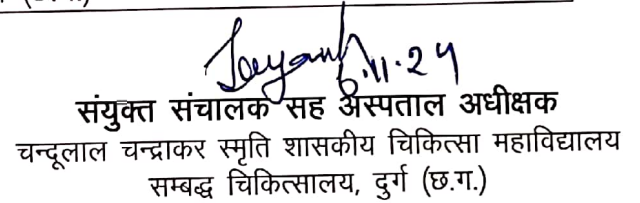 6.11.24
संयुक्त संचालक सह अस्पताल अधीक्षक
चन्दूलाल चन्द्राकर स्मृति शासकीय चिकित्सा महाविद्यालय
सम्बद्ध चिकित्सालय, दुर्ग (छ.ग.)